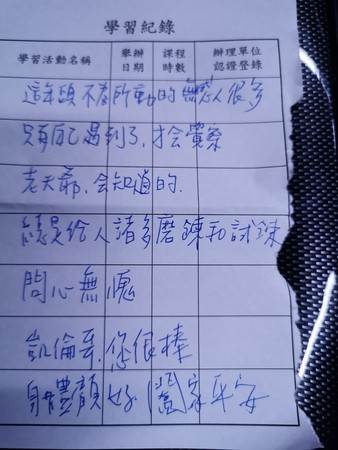 學習紀錄
學習活動名稱 舉辦日期 課程時數 辦理單位認證登錄
這年頭不為所動的無感人很多
只有自己遇到了，才会覺察
老天爺，会知道的.
總是給人諸多磨鍊和試鍊
問心無愧
凱倫哥，您很棒
身體顧好 闔家平安